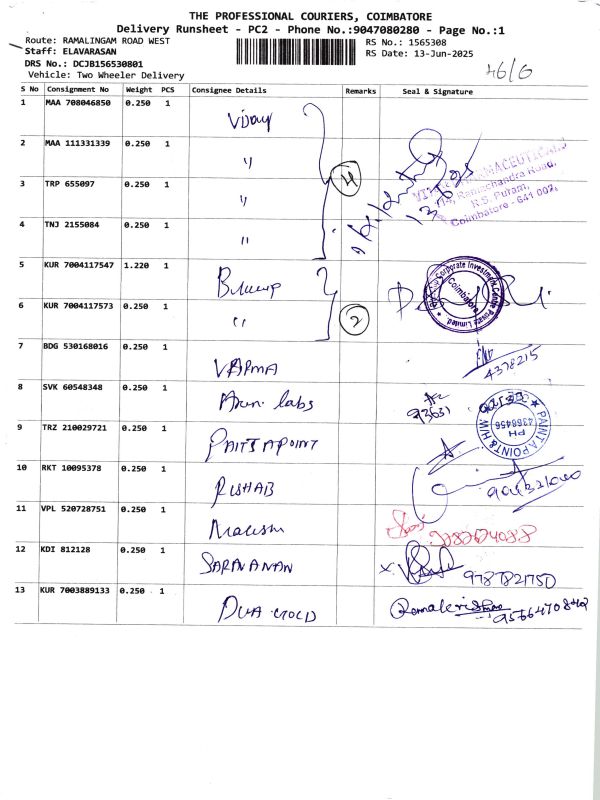 THE PROFESSIONAL COURIERS, COIMBATORE
Delivery Runsheet - PC2 - Phone No.:9047080280 - Page No.:1
Route: RAMALINGAM ROAD WEST
RS No.: 1565308
Staff: ELAVARASAN
RS Date: 13-Jun-2025
DRS No.: DCJB156530801
46/6
Vehicle: Two Wheeler Delivery
S No Consignment No Weight PCS Consignee Details Remarks Seal & Signature
1 MAA 708046850 0.250 1 Vijay
2 MAA 111331339 0.250 1 "
3 TRP 655097 0.250 1 " 4
Ramachandra Road,
R.S. Puram,
Coimbatore - 641 002.
4 TNJ 2155084 0.250 1 "
5 KUR 7004117547 1.220 1
Corporate Investment
Private Limited
Coimbatore
6 KUR 7004117573 0.250 1 " 2
7 BDG 530168016 0.250 1 VARMA 4378215
8 SVK 60548348 0.250 1 Arun labs 93631
PAINT A POINT
PH
4366456
9 TRZ 210029721 0.250 1 PAITTAPOINT
10 RKT 10095378 0.250 1 RISHAB
11 VPL 520728751 0.250 1
12 KDI 812128 0.250 1 SARAVANAN 9787821750
13 KUR 7003889133 0.250 1 DUA GOLD Ramakrishnan